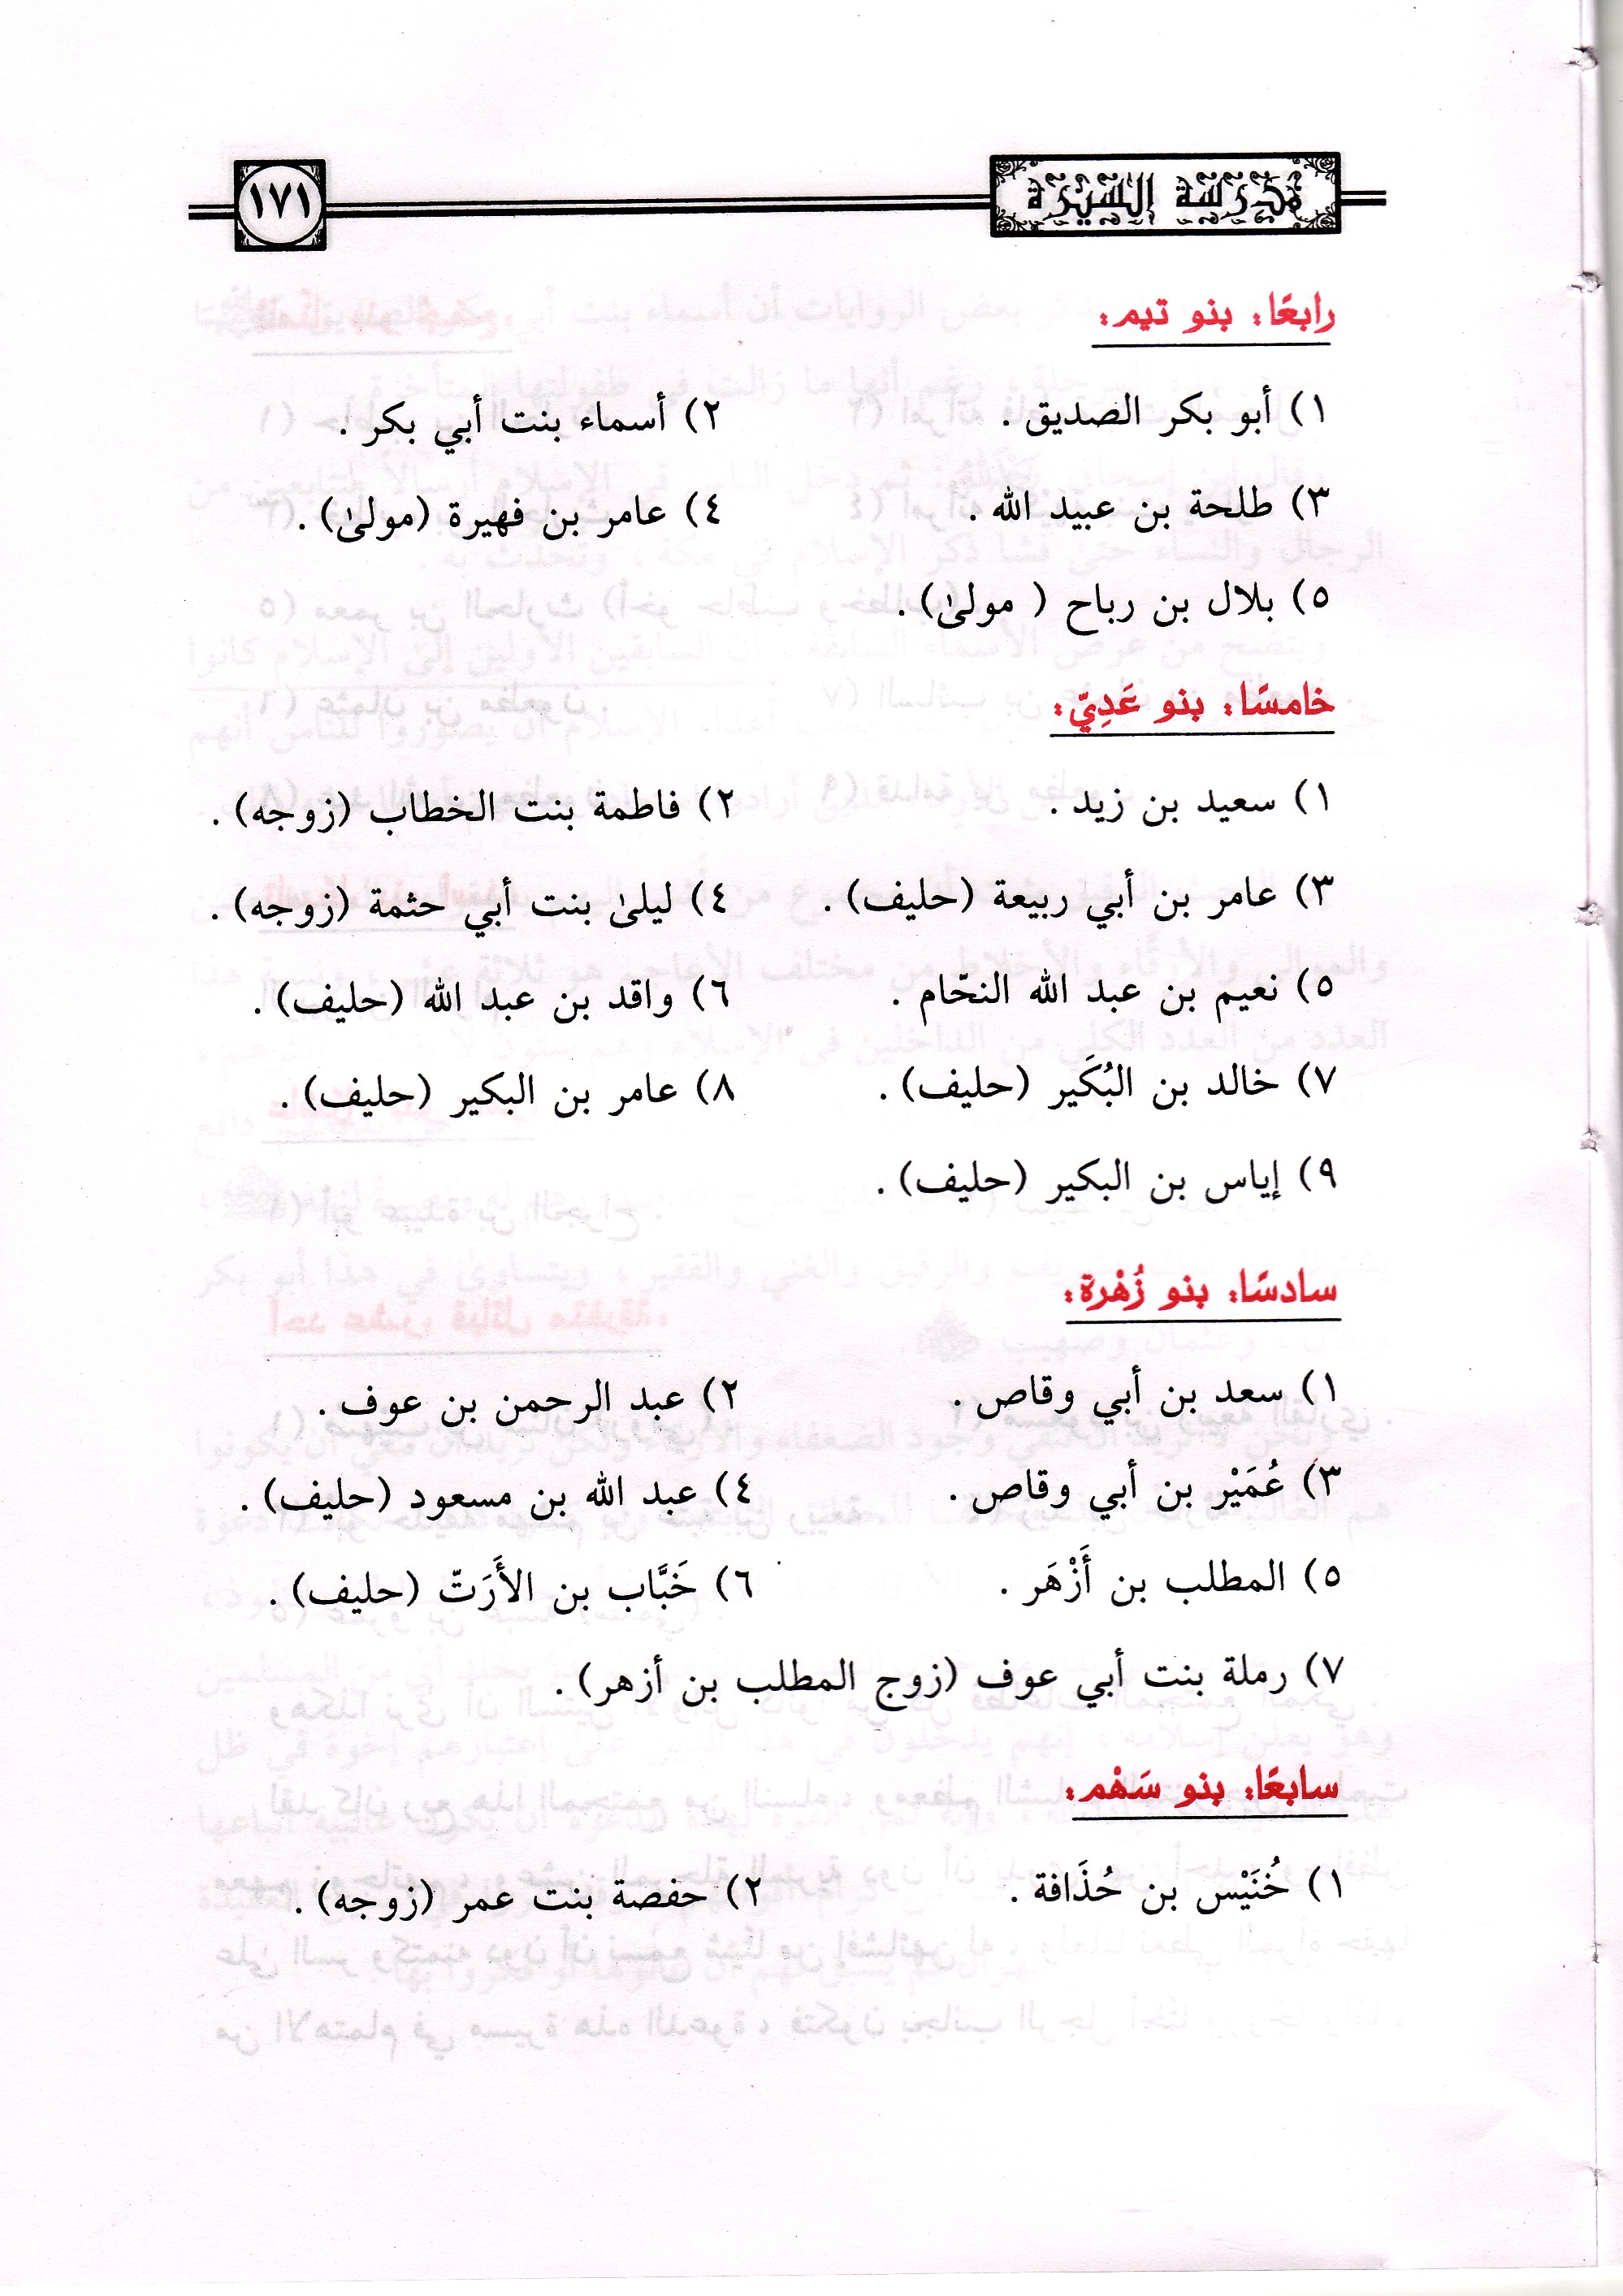 مدرسة السيرة ١٧١
رابعًا: بنو تيم:
١) أبو بكر الصديق . ٢) أسماء بنت أبي بكر .
٣) طلحة بن عبيد الله . ٤) عامر بن فهيرة (مولىٰ) .
٥) بلال بن رباح ( مولىٰ) .
خامسًا: بنو عَدِيّ:
١) سعيد بن زيد . ٢) فاطمة بنت الخطاب (زوجه) .
٣) عامر بن أبي ربيعة (حليف) . ٤) ليلىٰ بنت أبي حثمة (زوجه) .
٥) نعيم بن عبد الله النحّام . ٦) واقد بن عبد الله (حليف) .
٧) خالد بن البُكَير (حليف) . ٨) عامر بن البكير (حليف) .
٩) إياس بن البكير (حليف) .
سادسًا: بنو زُهْرة:
١) سعد بن أبي وقاص . ٢) عبد الرحمن بن عوف .
٣) عُمَيْر بن أبي وقاص . ٤) عبد الله بن مسعود (حليف) .
٥) المطلب بن أَزْهَر . ٦) خَبَّاب بن الأَرَتّ (حليف) .
٧) رملة بنت أبي عوف (زوج المطلب بن أزهر) .
سابعًا: بنو سَهْم:
١) خُنَيْس بن حُذَافة . ٢) حفصة بنت عمر (زوجه) .